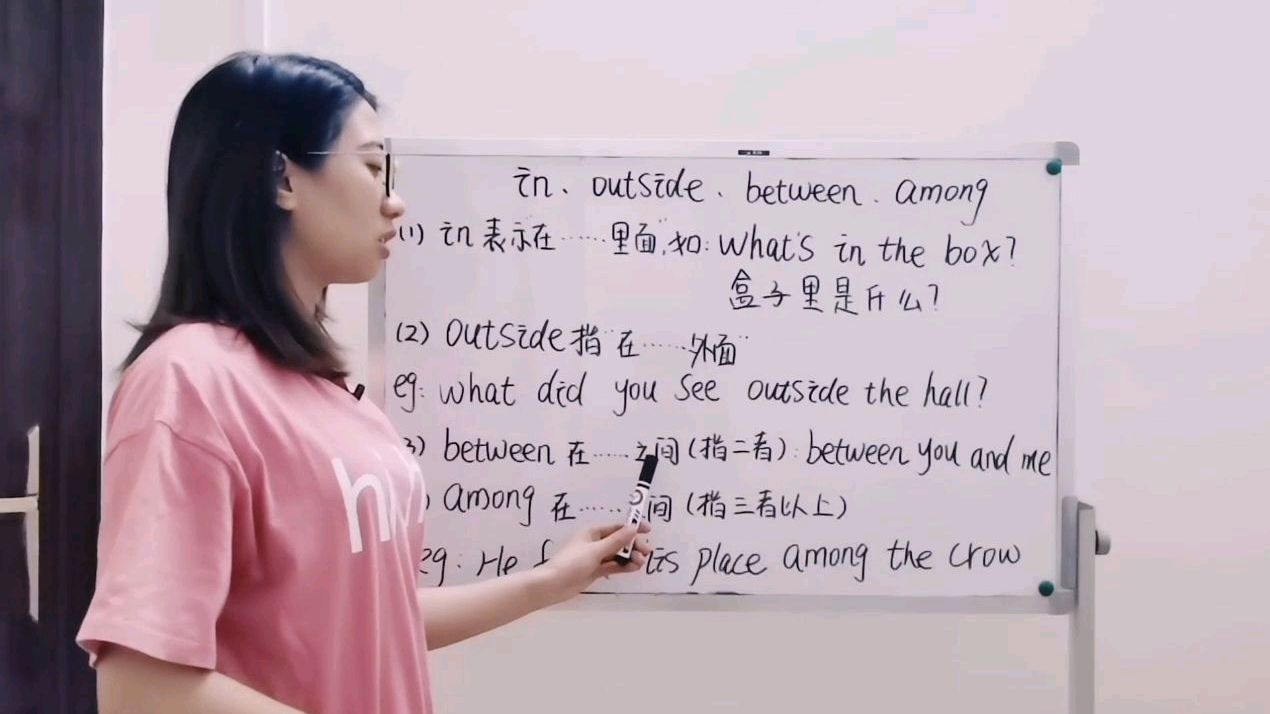 in、outside、between、among
(1) in 表示在……里面",如: What's in the box?
盒子里是什么?
(2) outside 指"在……外面"
eg: what did you see outside the hall?
3) between 在……之间(指二者): between you and me
) among 在……间(指三者以上)
eg: He place among the crow
hi